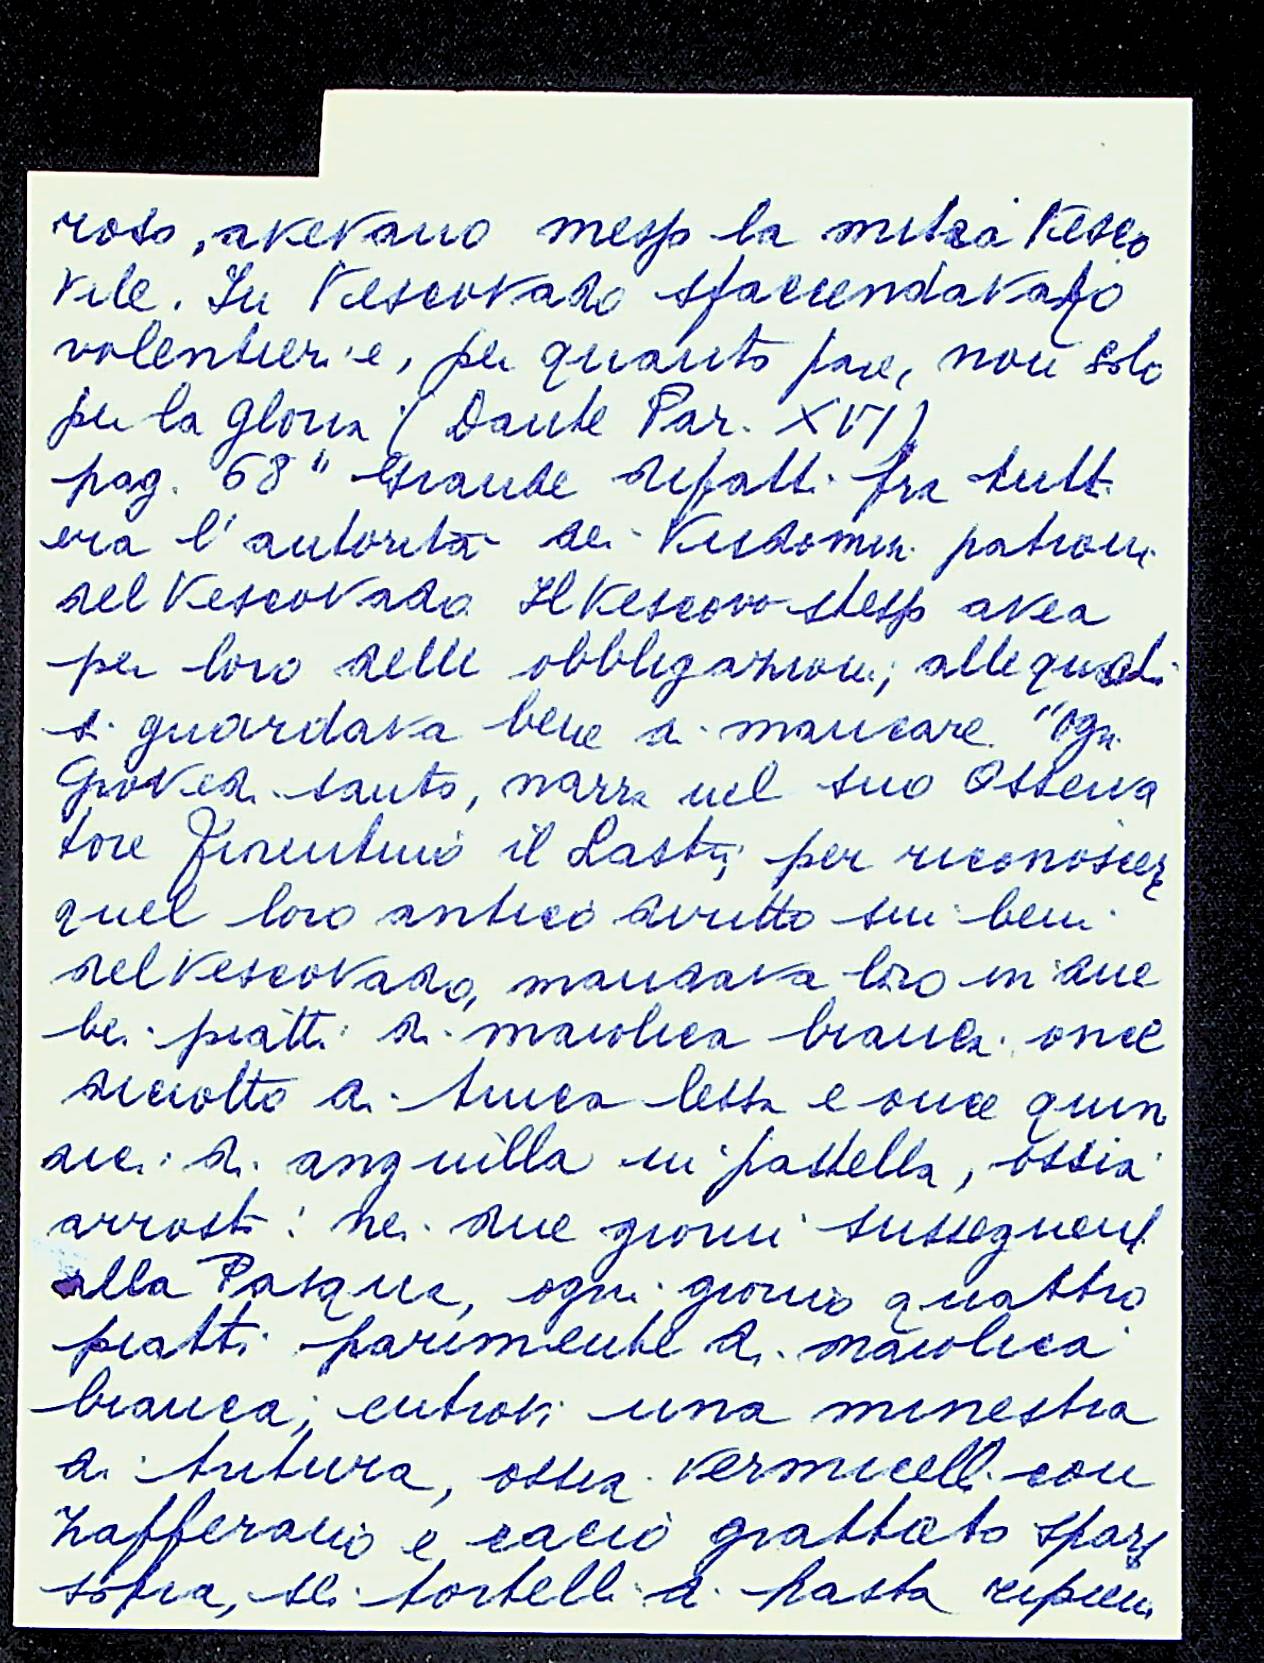 roso, avevano messo la mitra Vesco
vile. In Vescovado sfaccendavano
volentieri e, per quanto pare, non solo
per la gloria (Dante Par. XVI)
pag. 68 " Grande difatti fra tutti
era l'autorità dei Visdomini patroni
del Vescovado. Il Vescovo stesso avea
per loro delle obbligazioni; alle quali
si guardava bene di mancare. "Ogni
Giovedì santo, narra nel suo Osserva
tore Fiorentino il Lastri, per riconoscer
quel loro antico diritto sui beni
del Vescovado, mandava loro in due
bei piatti di maiolica bianchi once
diciotto di tinca lessa e once quin
dici di anguilla in pastella, ossia
arrosto: nei due giorni susseguenti
alla Pasqua, ogni giorno quattro
piatti parimente di maiolica
bianca; entrovi una minestra
di tutura, ossia vermicelli con
zafferano e cacio grattato sparso
sopra, sei tortelli di pasta ripieni